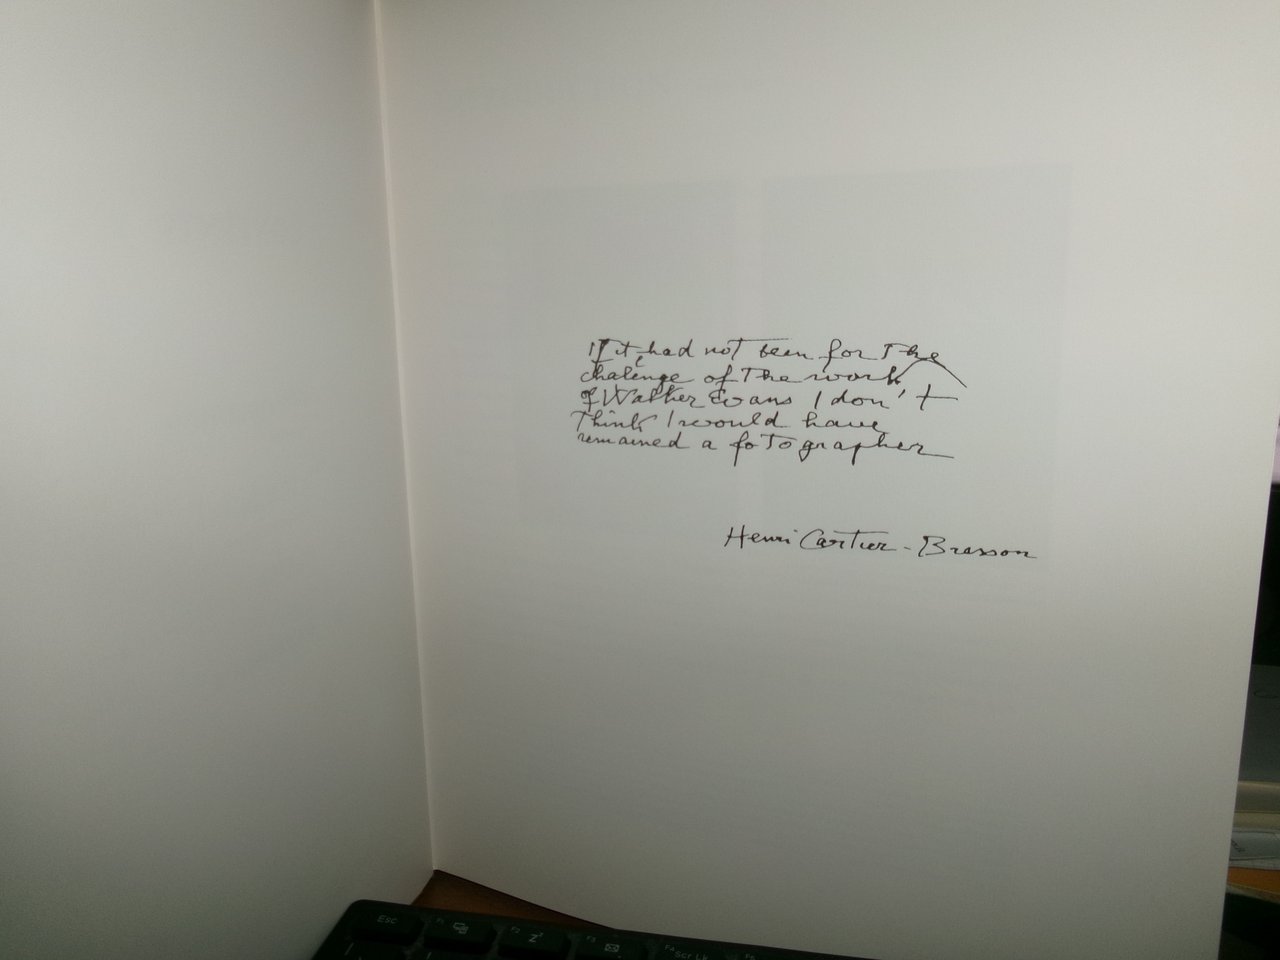 If it had not been for the
challenge of the work
of Walker Evans I don't
think I would have
remained a fotographer
Henri Cartier-Bresson
Esc
F1
F2
Z
F3
F4
Scr Lk